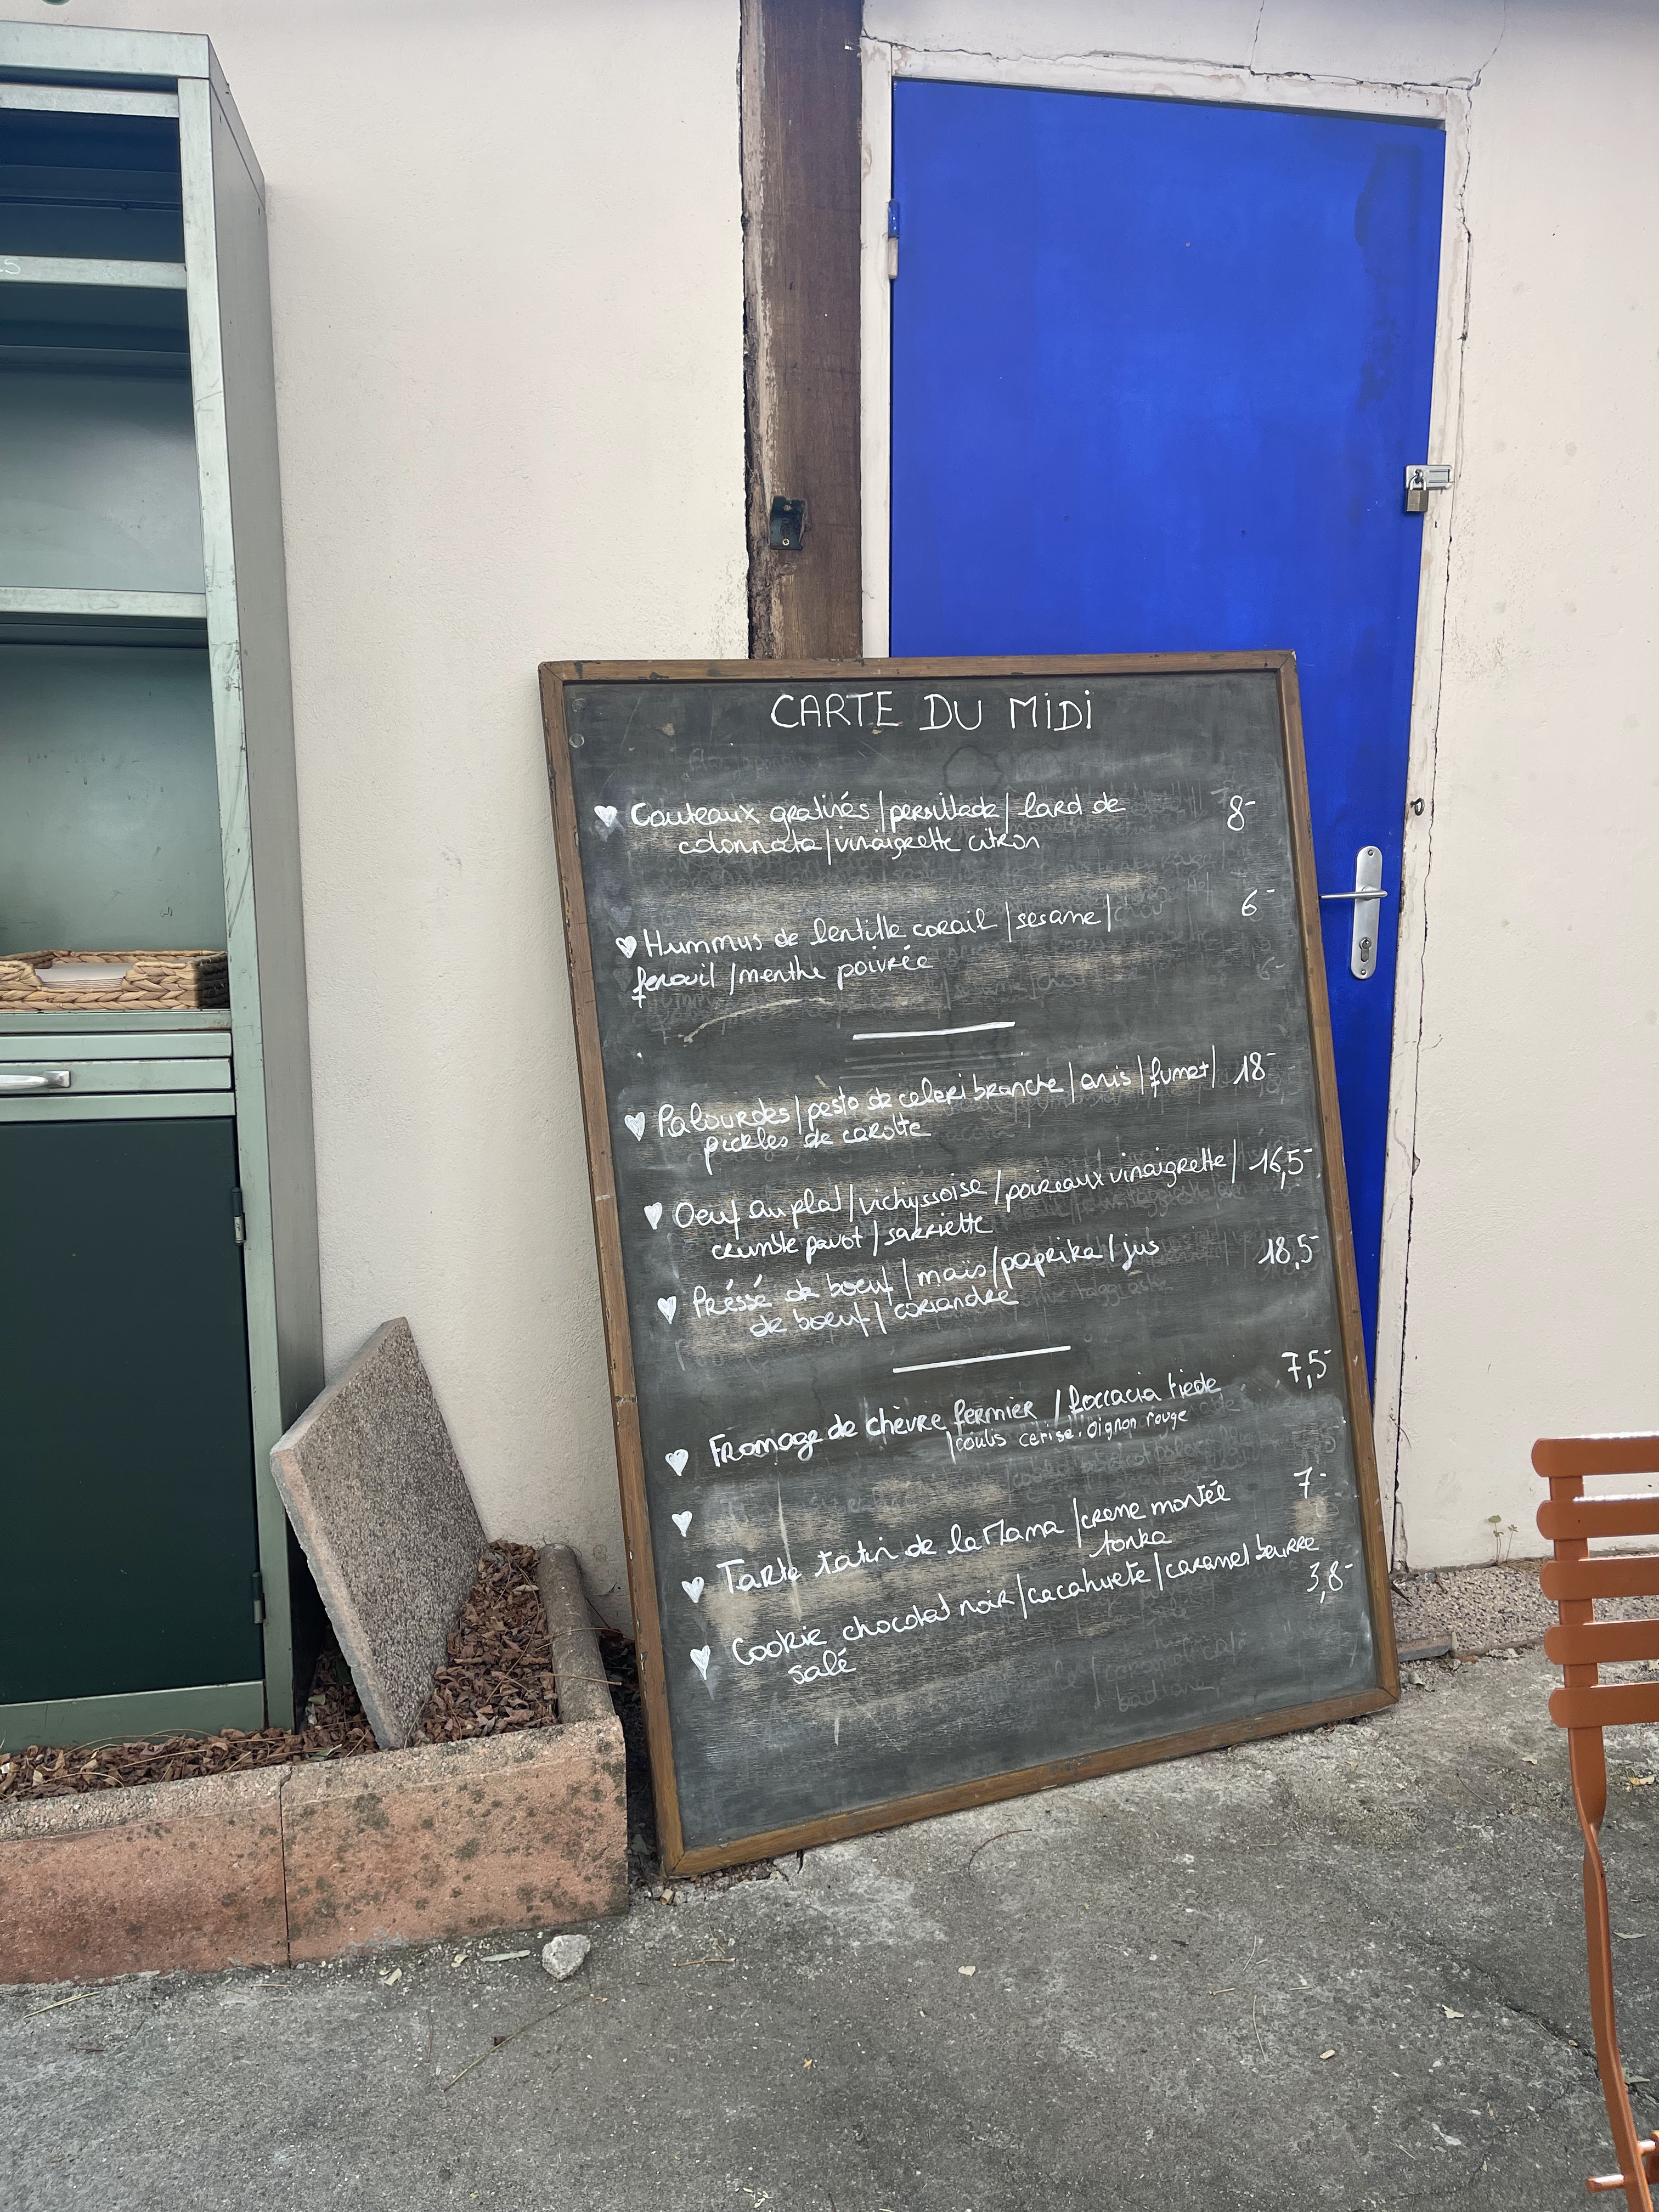 CARTE DU MiDi
Couteaux gratinés / persillade / lard de 8-
colonnata / vinaigrette citron
Hummus de lentille corail / sesame / 6-
fenouil / menthe poivrée
Palourdes / pesto de celeri branche / anis / fumet / 18-
pickles de carotte
Oeuf au plat / vichyssoise / poireaux vinaigrette / 16,5-
crumble pavot / sarriette
Préssé de boeuf / maïs / paprika / jus 18,5-
de boeuf / coriandre
Fromage de chèvre fermier / foccacia tiede 7,5-
/ coulis cerise. oignon rouge
Tarte tatin de la Mama / creme montée 7-
tonka
Cookie chocolat noir / cacahuete / caramel beurre 3,8-
salé